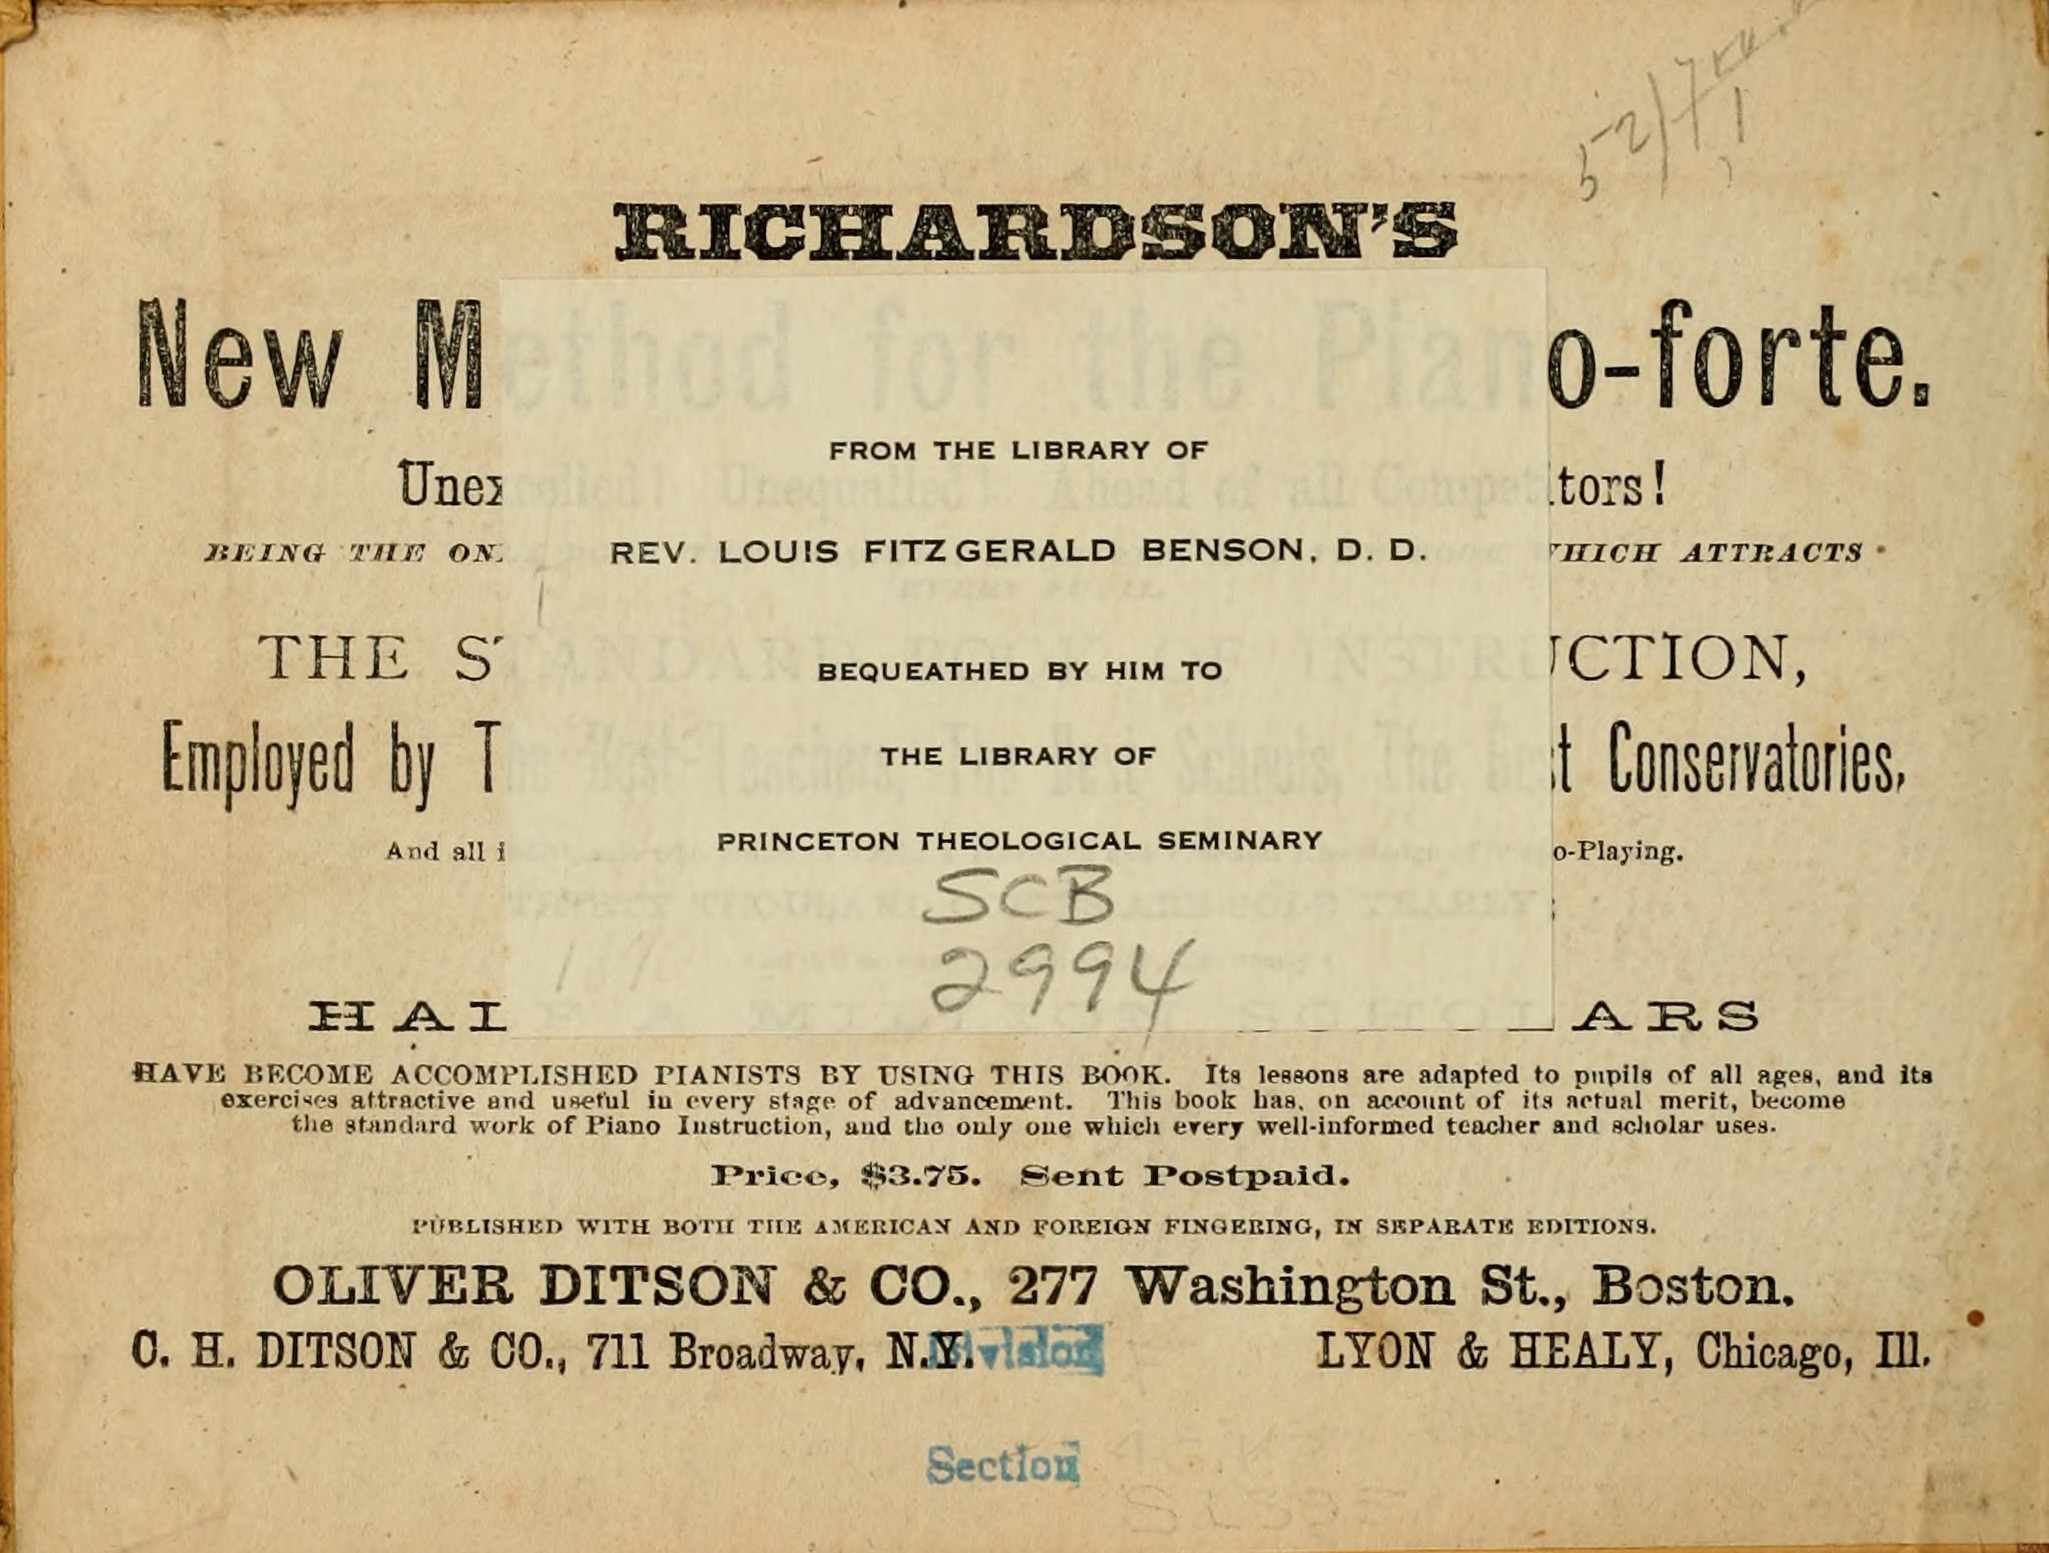 RICHARDSON'S
New Method for the Piano-forte.
FROM THE LIBRARY OF
REV. LOUIS FITZGERALD BENSON, D. D.
BEQUEATHED BY HIM TO
THE LIBRARY OF
PRINCETON THEOLOGICAL SEMINARY
SCB
2994
Unexcelled! Unequaled! Ahead of all Competitors!
BEING THE WHICH ATTRACTS
THE STANDARD INSTRUCTION,
Employed by The Best Teachers, The Best Schools, The Best Conservatories,
And all o-Playing.
HALF A MILLION SCHOLARS
HAVE BECOME ACCOMPLISHED PIANISTS BY USING THIS BOOK. Its lessons are adapted to pupils of all ages, and its
exercises attractive and useful in every stage of advancement. This book has, on account of its actual merit, become
the standard work of Piano Instruction, and the only one which every well-informed teacher and scholar uses.
Price, $3.75. Sent Postpaid.
PUBLISHED WITH BOTH THE AMERICAN AND FOREIGN FINGERING, IN SEPARATE EDITIONS.
OLIVER DITSON & CO., 277 Washington St., Boston.
C. H. DITSON & CO., 711 Broadway, N.Y. LYON & HEALY, Chicago, Ill.
Division
Section